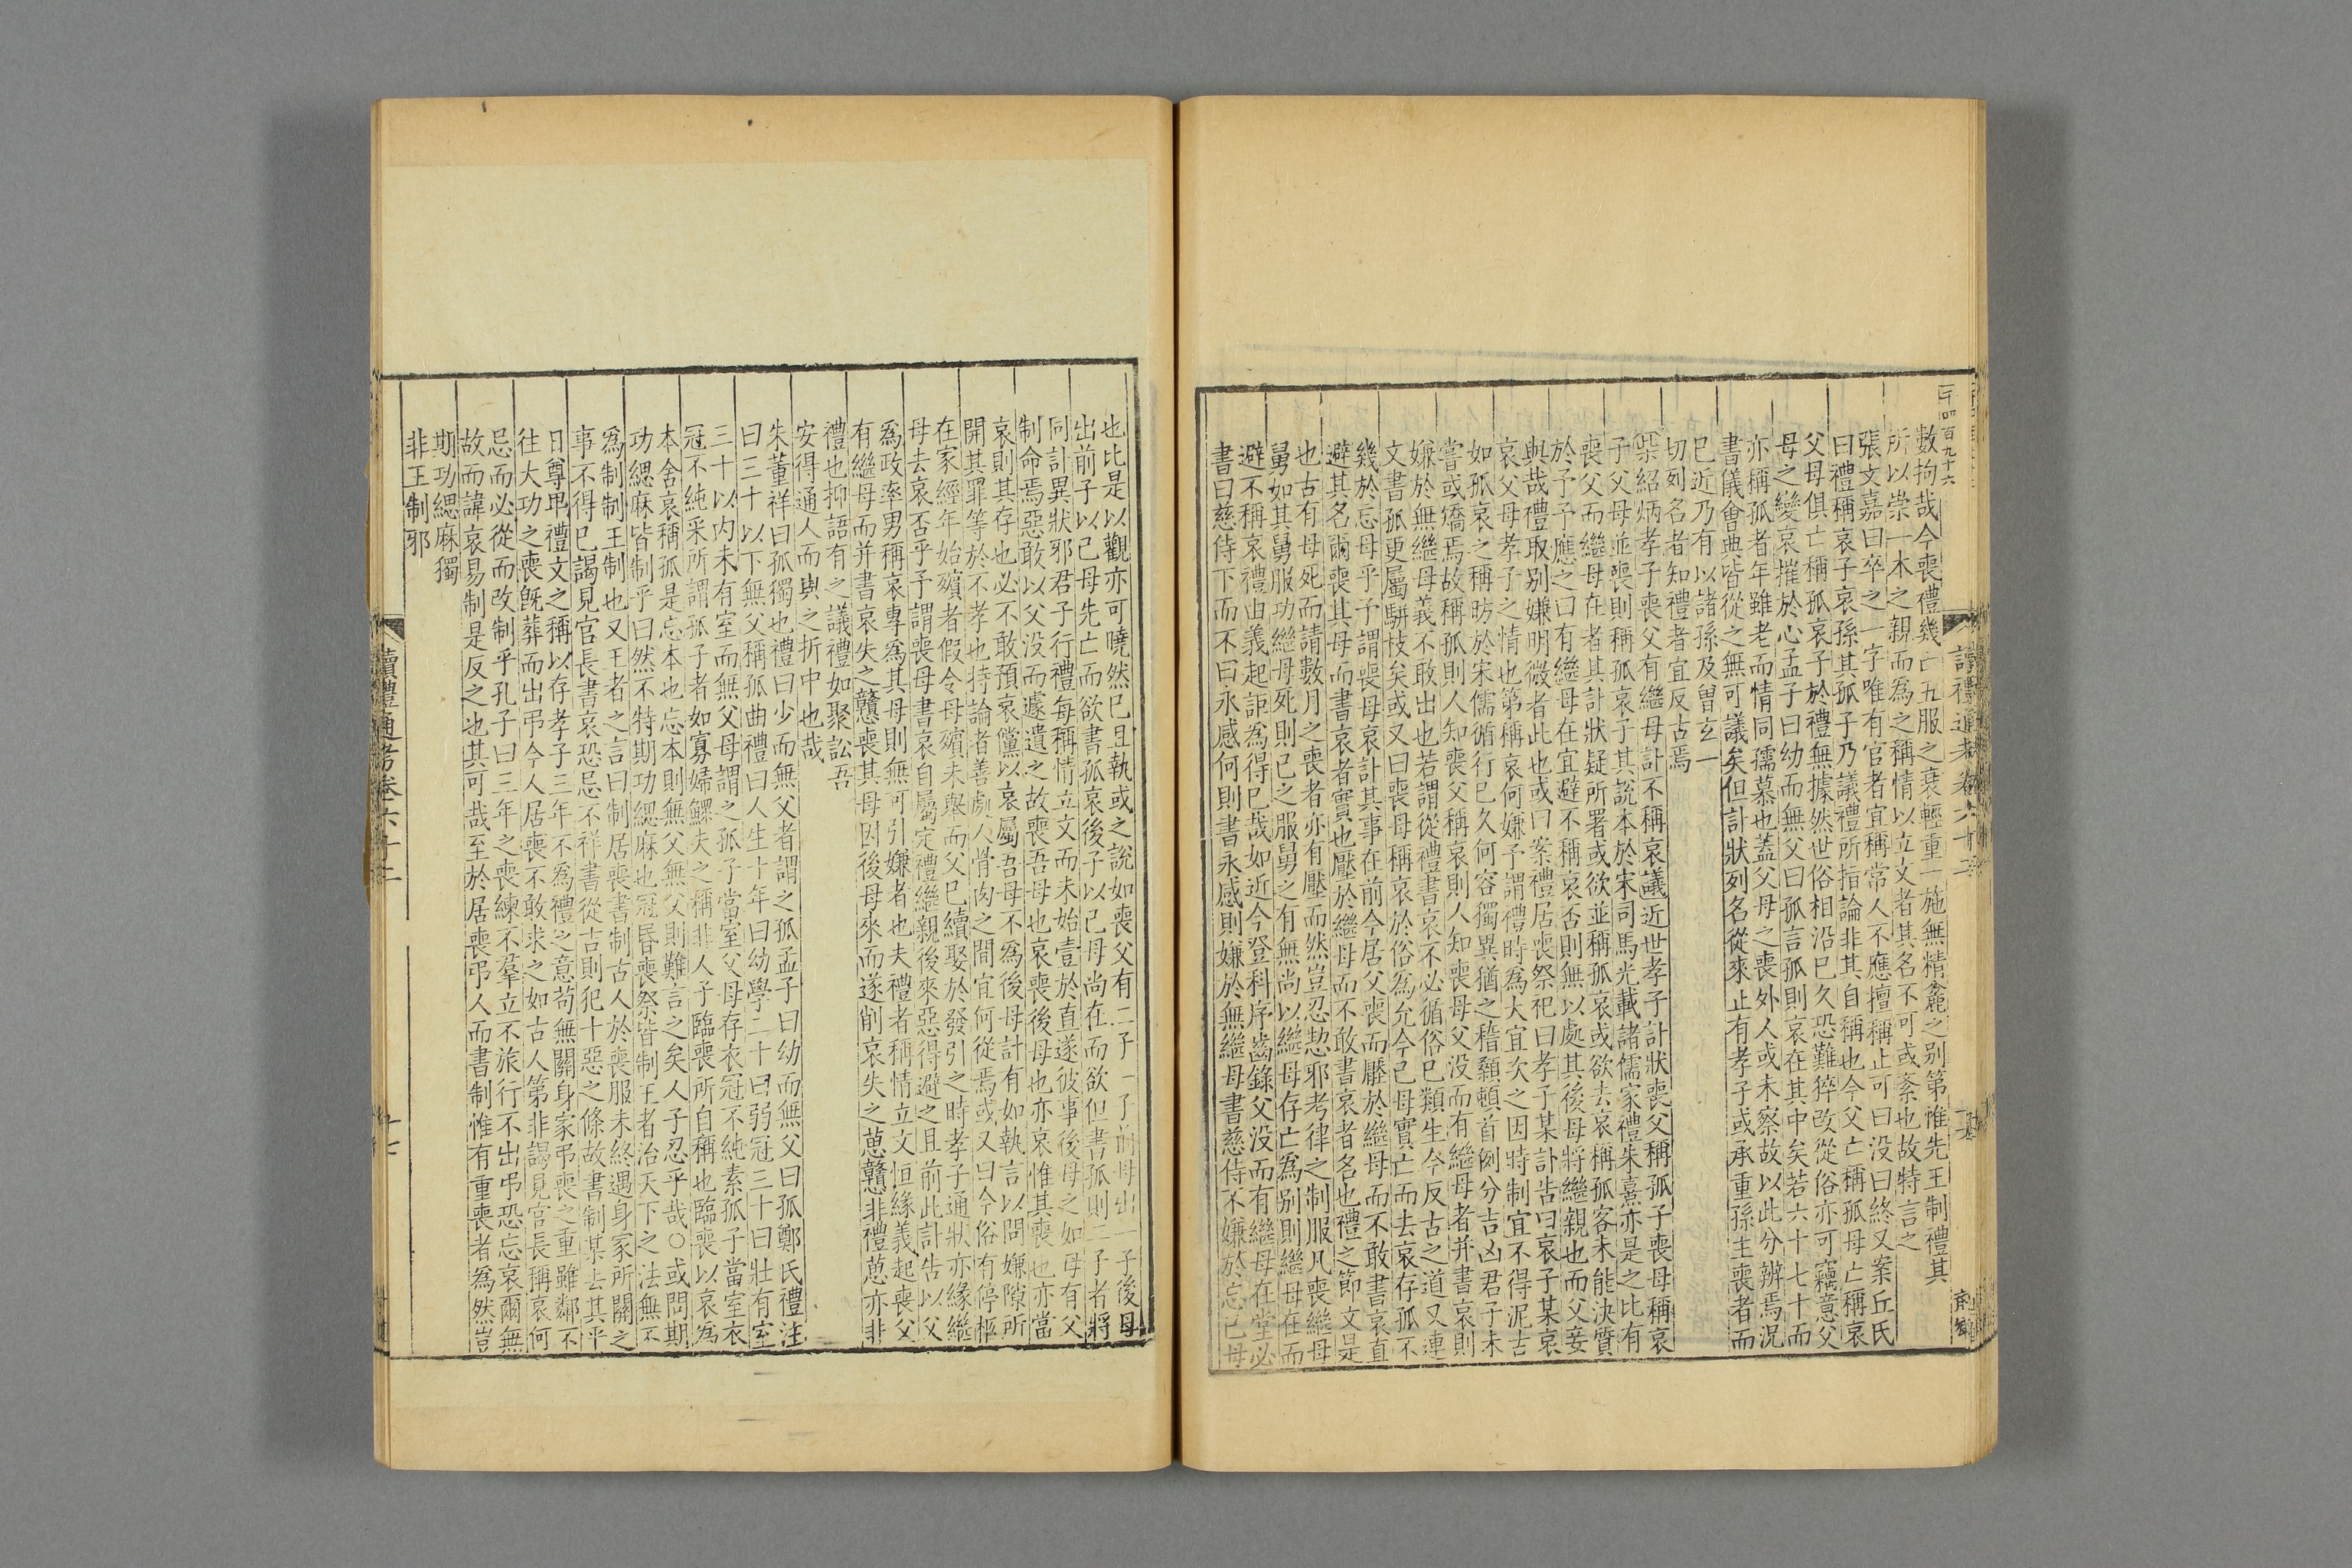 二千四百九十六
讀禮通考卷六十二
數拘哉今喪禮幾亡五服之衰輕重一施無精麄之别第惟先王制禮其
所以崇一本之親而為之稱情以立文者其名不可或紊也故特言之
張文嘉曰卒之一字唯有官者宜稱常人不應擅稱止可曰没曰終又案丘氏
曰禮稱哀子哀孫其孤子乃議禮所指論非其自稱也今父亡稱孤母亡稱哀
父母俱亡稱孤哀子於禮無據然世俗相沿已久恐難猝改從俗亦可竊意父
母之變哀摧於心孟子曰幼而無父曰孤言孤則哀在其中矣若六十七十而
亦稱孤者年雖老而情同孺慕也蓋父母之喪外人或未察故以此分辨焉況
書儀會典皆從之無可議矣但訃狀列名從來止有孝子或承重孫主喪者而
已近乃有以諸孫及曾玄一
切列名者知禮者宜反古焉
柴紹炳孝子喪父有繼母訃不稱哀議近世孝子訃狀喪父稱孤子喪母稱哀
子父母並喪則稱孤哀子其說本於宋司馬光載諸儒家禮朱熹亦是之比有
喪父而繼母在者其訃狀疑所署或欲並稱孤哀或欲去哀稱孤客未能決質
於予予應之曰有繼母在宜避不稱哀否則無以處其後母將繼親也而父妾
與哉禮取别嫌明微者此也或曰案禮居喪祭祀曰孝子某訃告曰哀子某哀
哀父母孝子之情也第稱哀何嫌予謂禮時為大宜次之因時制宜不得泥古
如孤哀之稱昉於宋儒循行已久何容獨異猶之稽顙頓首例分吉凶君子未
嘗或矯焉故稱孤則人知喪父稱哀則人知喪母父没而有繼母者并書哀則
嫌於無繼母義不敢出也若謂從禮書哀不必循俗已類生今反古之道又連
文書孤更屬駢枝矣或又曰喪母稱哀於俗為允今已母實亡而去哀存孤不
幾於忘母乎予謂喪母哀訃其事在前今居父喪而厭於繼母而不敢書哀直
避其名爾喪其母而書哀者實也壓於繼母而不敢書哀者名也禮之節文是
也古有母死而請數月之喪者亦有壓而然豈忍恝邪考律之制服凡喪繼母
舅如其舅服功繼母死則已之服舅之有無尚以繼母存亡為别則繼母在而
避不稱哀禮由義起詎為得已哉如近今登科序齒錄父没而有繼母在堂必
書曰慈侍下而不曰永感何則書永感則嫌於無繼母書慈侍不嫌於忘已母
也比是以觀亦可曉然已且執或之說如喪父有二子一子前母出一子後母
出前子以已母先亡而欲書孤哀後子以已母尚在而欲但書孤則二子者將
同訃異狀邪君子行禮每稱情立文而未始壹於直遂彼事後母之如母有父
制命焉惡敢以父没而遽遺之故喪吾母也哀喪後母也亦哀惟其喪也亦當
哀則其存也必不敢預哀儻以哀屬吾母不為後母訃有如執言以問嫌隙所
開其罪等於不孝也持論者善處人骨肉之間宜何從焉或又曰今俗有停柩
在家經年始殯者假令母殯未舉而父已續娶於發引之時孝子通狀亦緣繼
母去哀否乎予謂喪母書哀自屬定禮繼親後來惡得避之且前此訃告以父
為政率男稱哀專為其母則無可引嫌者也夫禮者稱情立文恒緣義起喪父
有繼母而并書哀失之戇喪其母因後母來而遂削哀失之葸戇非禮葸亦非
禮也抑語有之議禮如聚訟吾
安得通人而與之折中也哉
朱董祥曰孤獨也禮曰少而無父者謂之孤孟子曰幼而無父曰孤鄭氏禮注
曰三十以下無父稱孤曲禮曰人生十年曰幼學二十曰弱冠三十曰壯有室
三十以内未有室而無父母謂之孤子當室父母存衣冠不純素孤子當室衣
冠不純采所謂孤子者如寡婦鰥夫之稱非人子臨喪所自稱也臨喪以哀為
本舍哀稱孤是忘本也忘本則無父無父則難言之矣人子忍乎哉○或問期
功緦麻皆制乎曰然不特期功緦麻也冠昏喪祭皆制王者治天下之法無不
為制制王制也又王者之言曰制居喪書制古人於喪服未終遇身家所關之
事不得已謁見官長書哀恐忌不祥書從吉則犯十惡之條故書制某去其平
日尊甲禮文之稱以存孝子三年不為禮之意苟無關身家弔喪之重雖鄰不
往大功之喪旣葬而出弔今人居喪不敢求之如古人第非謁見官長稱哀何
忌而必從而改制乎孔子曰三年之喪練不羣立不旅行不出弔恐忘哀爾無
故而諱哀易制是反之也其可哉至於居喪弔人而書制惟有重喪者為然豈
期功緦麻獨
非王制邪
讀禮通考卷六十二
十七